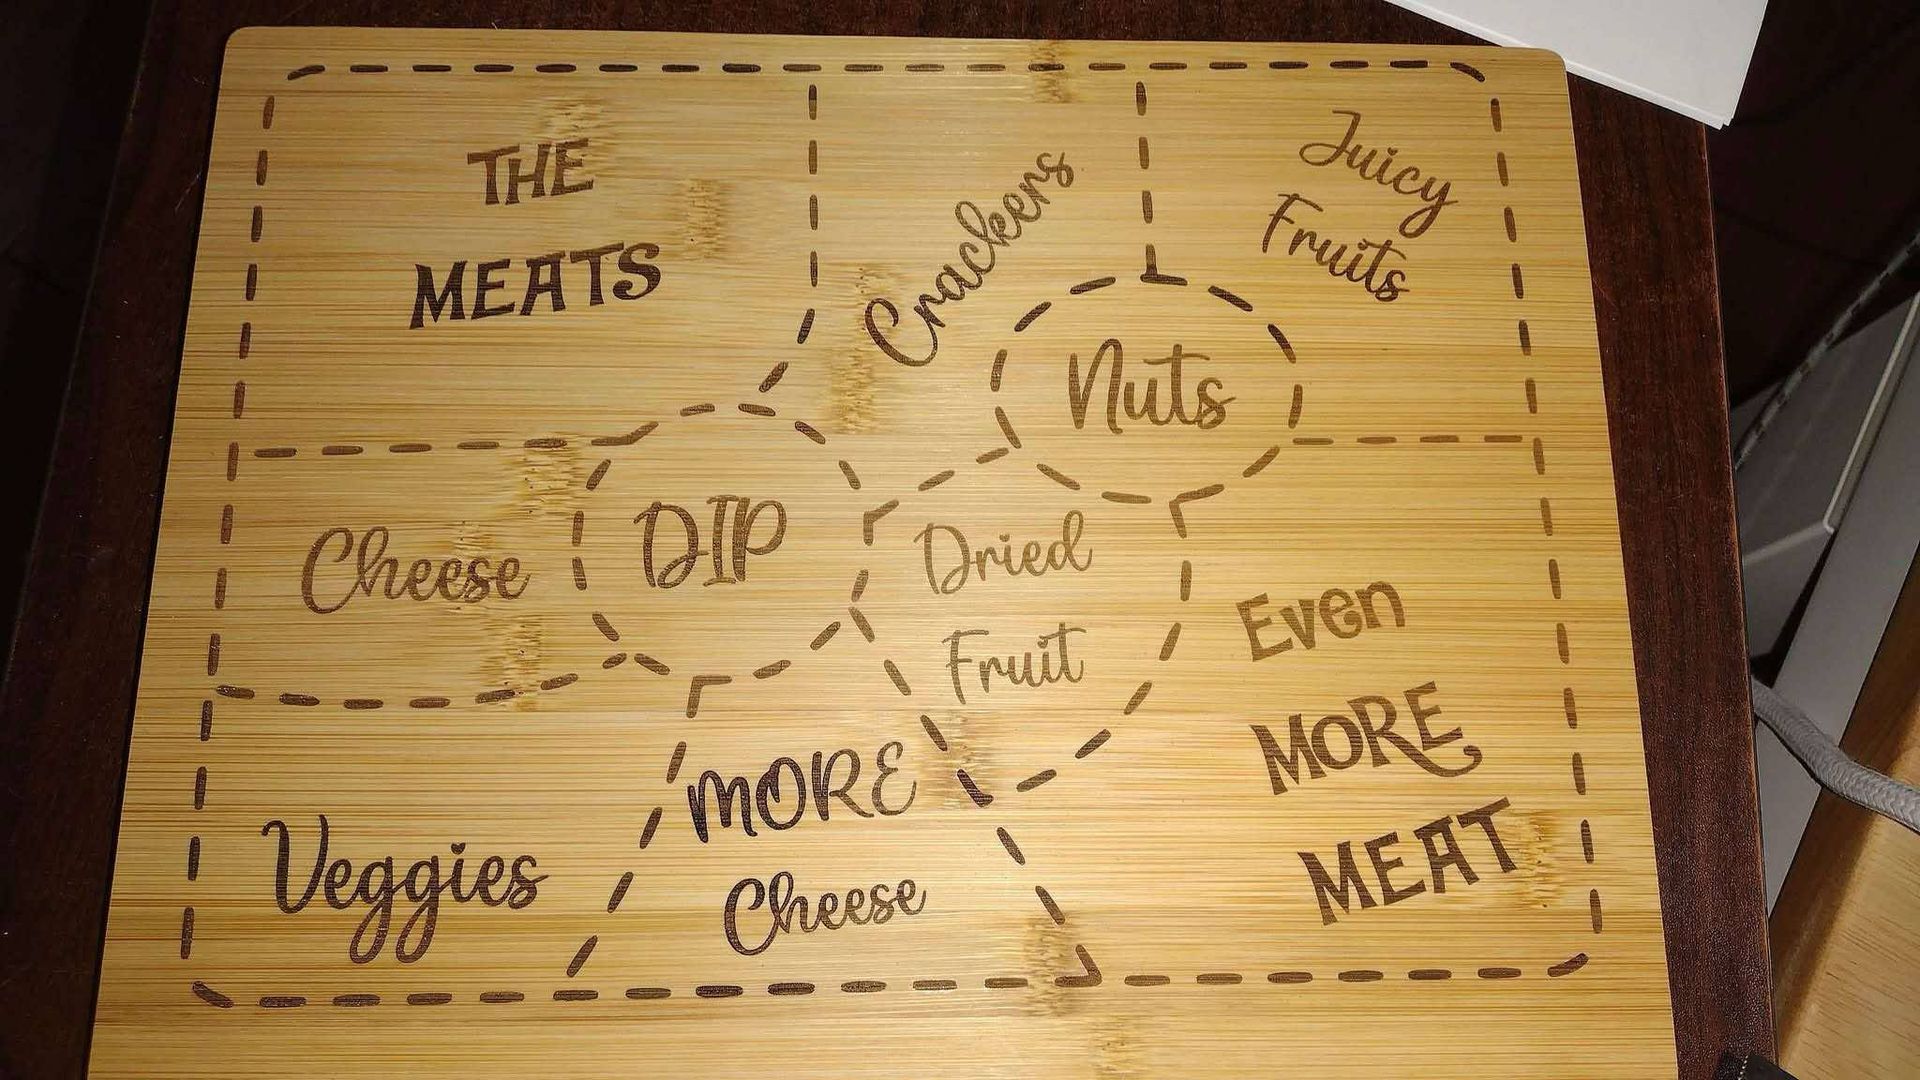 THE
MEATS
Crackers
Juicy
Fruits
Nuts
Cheese
DIP
Dried
Fruit
Even
MORE
MEAT
Veggies
MORE
Cheese